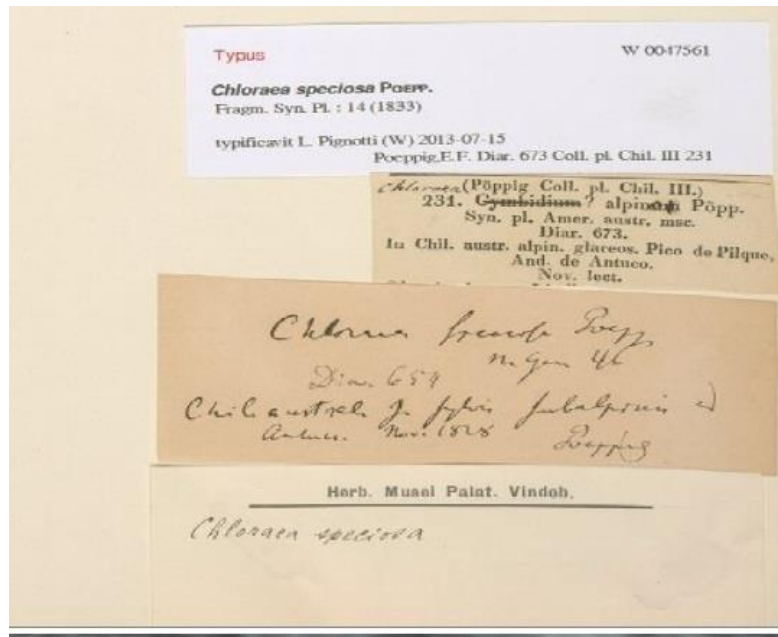 Typus
W 0047561
Chloraea speciosa POEPP.
Fragm. Syn. Pl. : 14 (1833)
typificavit L. Pignotti (W) 2013-07-15
Poeppig,E.F. Diar. 673 Coll. pl. Chil. III 231
Chloraea (Pöppig Coll. pl. Chil. III.)
231. Cymbidium? alpinum Pöpp.
Syn. pl. Amer. austr. msc.
Diar. 673.
In Chil. austr. alpin. glareos. Pico de Pilque,
And. de Antuco.
Nov. lect.
Chloraea speciosa Poepp
n. Gen 46
Diar. 659
Chili australi sylvis subalpinis
Antuco. Nov. 1828
Poeppig
Herb. Musei Palat. Vindob.
Chloraea speciosa